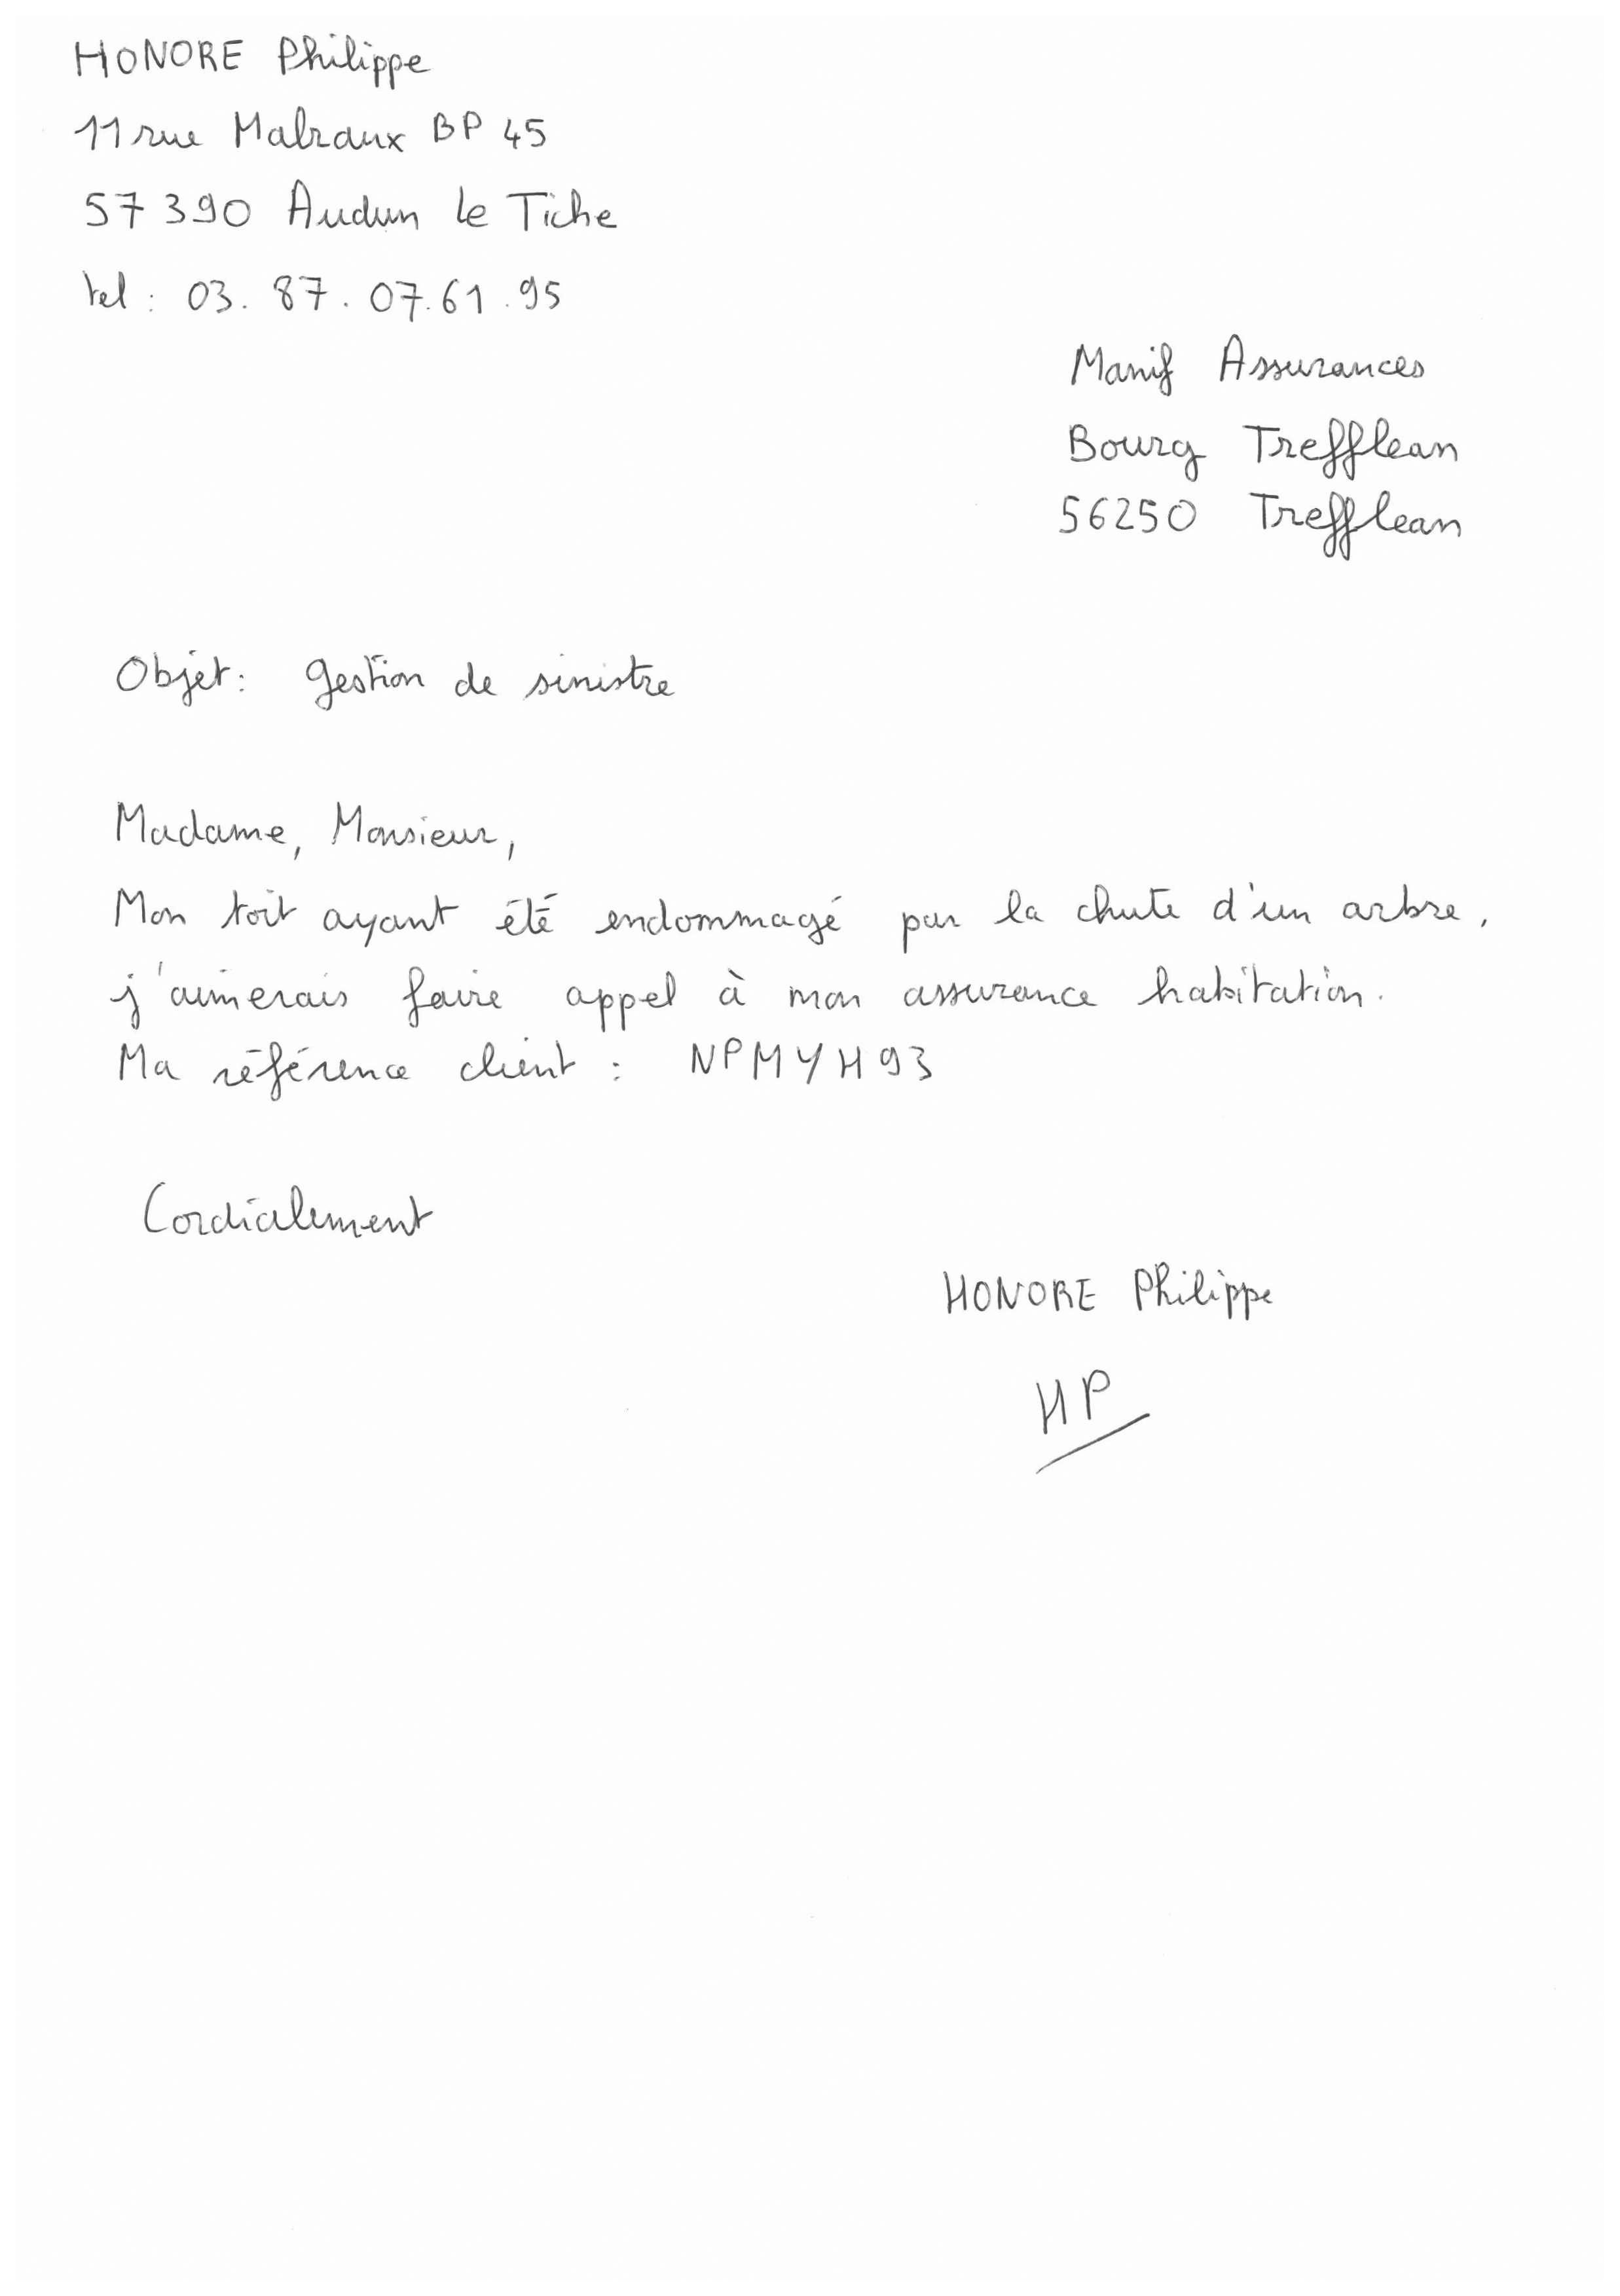 HONORE Philippe
11 rue Malraux BP 45
57390 Audun le Tiche
tel : 03.87.07.61.95
Manif Assurances
Bourg Trefflean
56250 Trefflean
Objet : gestion de sinistre
Madame, Monsieur,
Mon toit ayant été endommagé par la chute d'un arbre,
j'aimerais faire appel à mon assurance habitation.
Ma référence client : NPMYH93
Cordialement
HONORE Philippe
HP